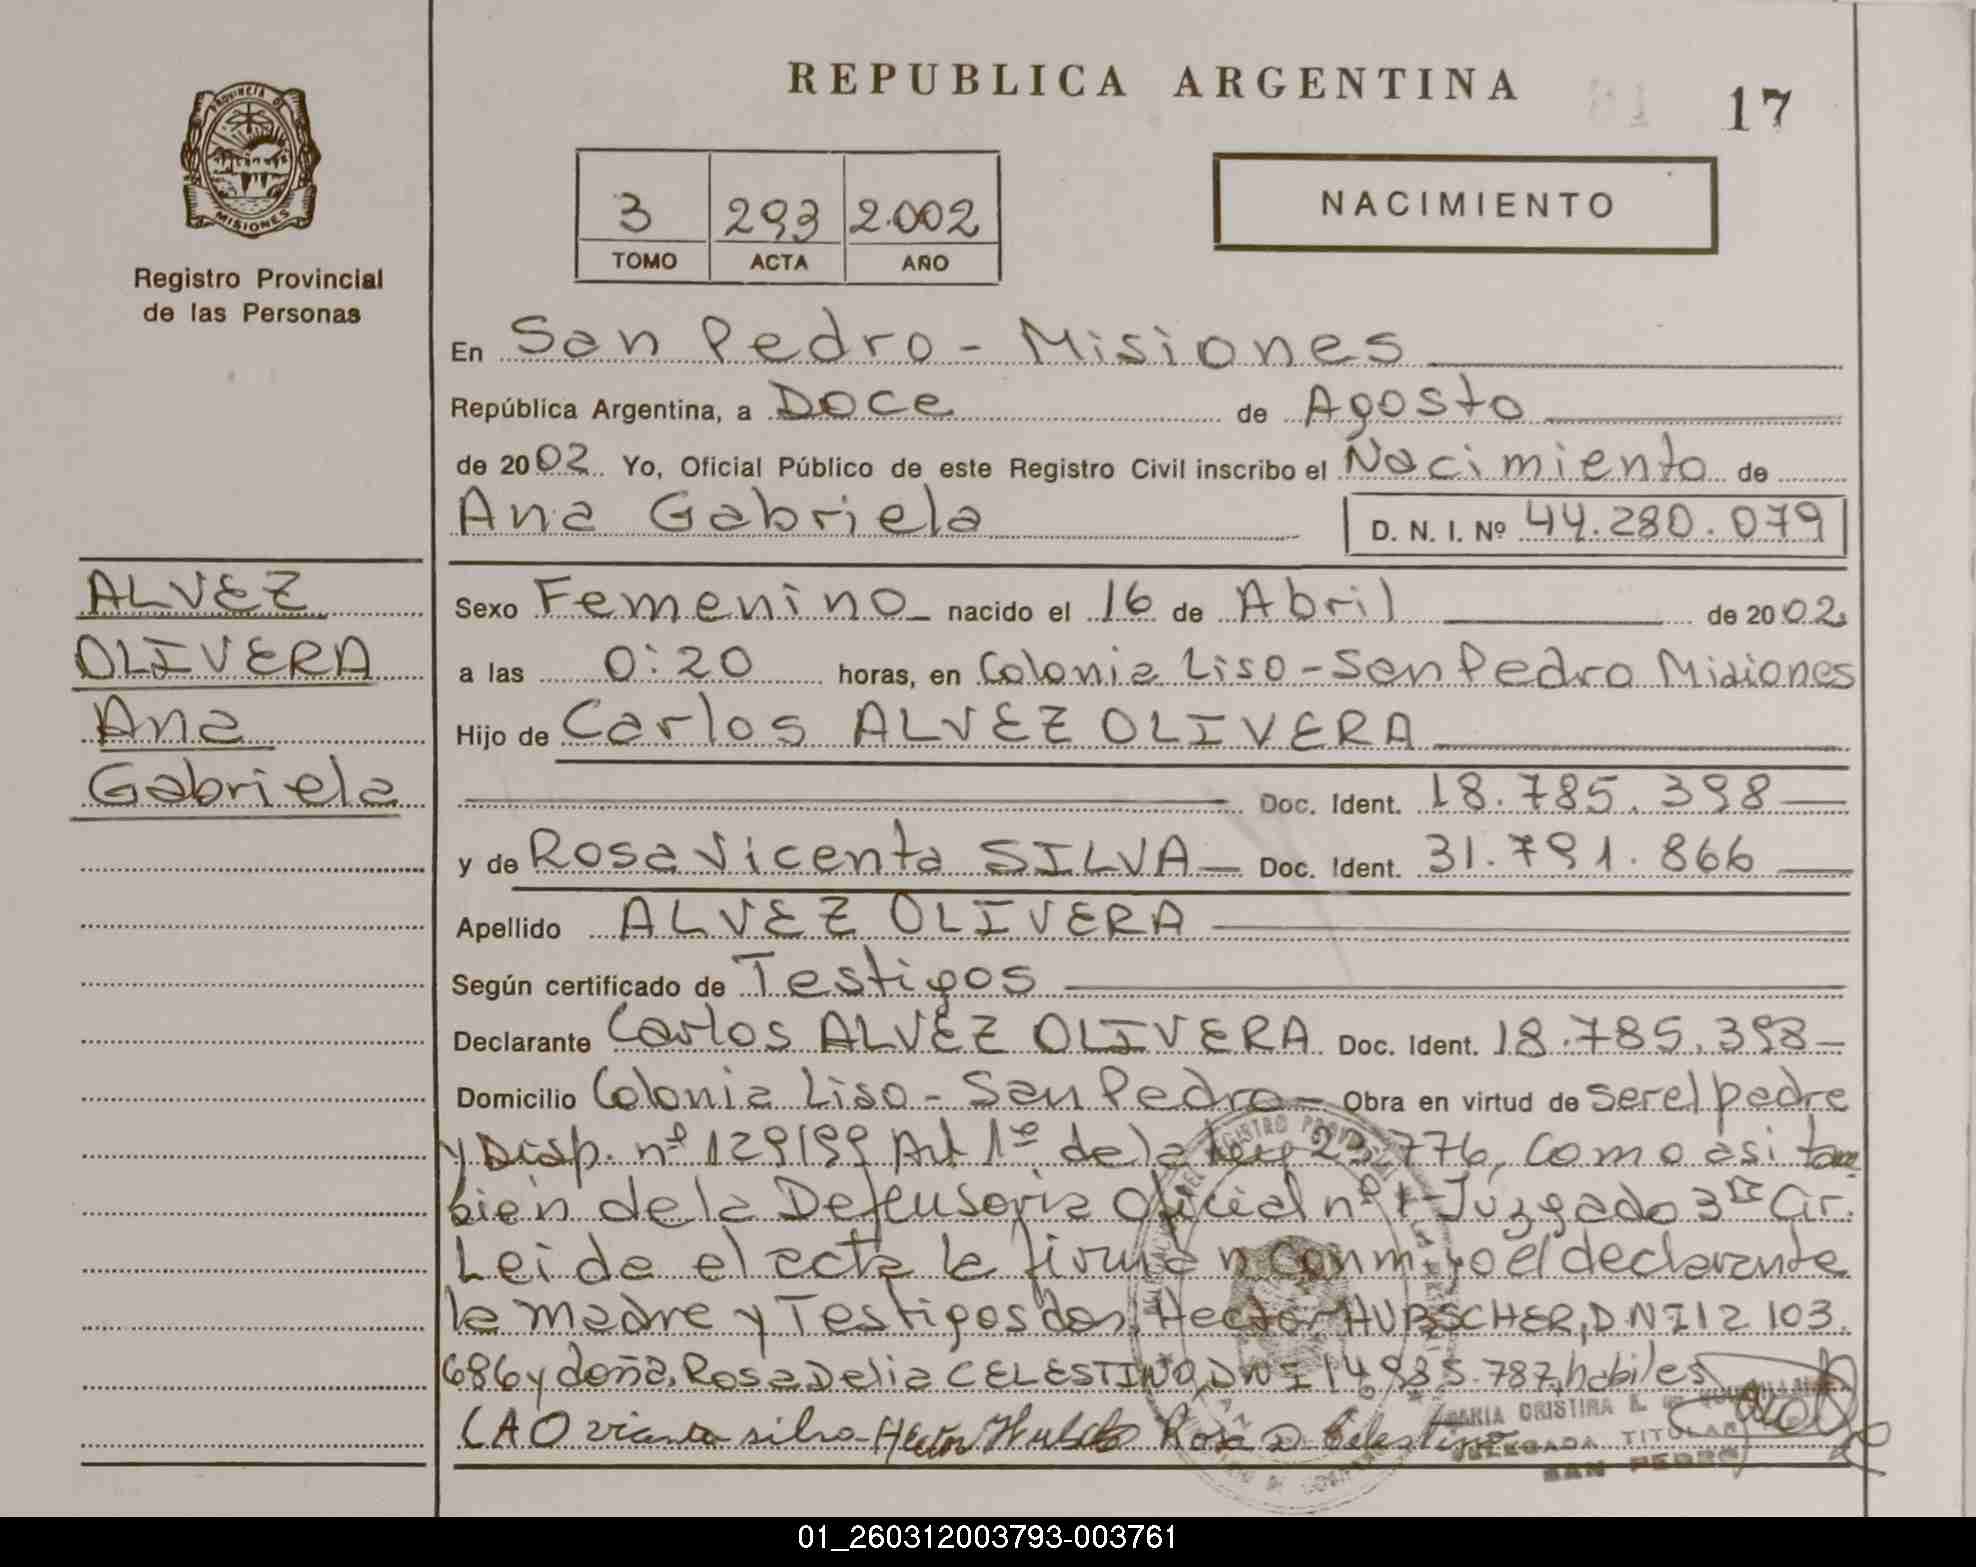 REPUBLICA ARGENTINA
17
PROVINCIA DE
MISIONES
Registro Provincial
de las Personas
3 293 2.002
TOMO ACTA AÑO
NACIMIENTO
En San Pedro - Misiones
República Argentina, a Doce de Agosto
de 2002 Yo, Oficial Público de este Registro Civil inscribo el Nacimiento de
Ana Gabriela D. N. I. Nº 44.280.079
ALVEZ
OLIVERA
Ana
Gabriela
Sexo Femenino nacido el 16 de Abril de 2002
a las 0:20 horas, en Colonia Liso - San Pedro Misiones
Hijo de Carlos ALVEZ OLIVERA
Doc. Ident. 18.785.398
y de Rosa Vicenta SILVA Doc. Ident. 31.791.866
Apellido ALVEZ OLIVERA
Según certificado de Testigos
Declarante Carlos ALVEZ OLIVERA Doc. Ident. 18.785.398
Domicilio Colonia Liso - San Pedro - Obra en virtud de ser el padre
y Disp. nº 129/99 Art 1º de la Ley 25.776, como asi tam
bien de la Defensoria Oficial nº 1 - Juzgado 3ra Cir.
Leida el acta la firman conmigo el declarante
la madre y Testigos don Hector HUBSCHER, DNI 12 103.
686 y doña, Rosa Delia CELESTINO, DNI 14 985.787, habiles
CAO vicenta silva Hector Rosa D. Celestino
MARIA CRISTINA
DELEGADA TITULAR
SAN PEDRO
01_260312003793-003761